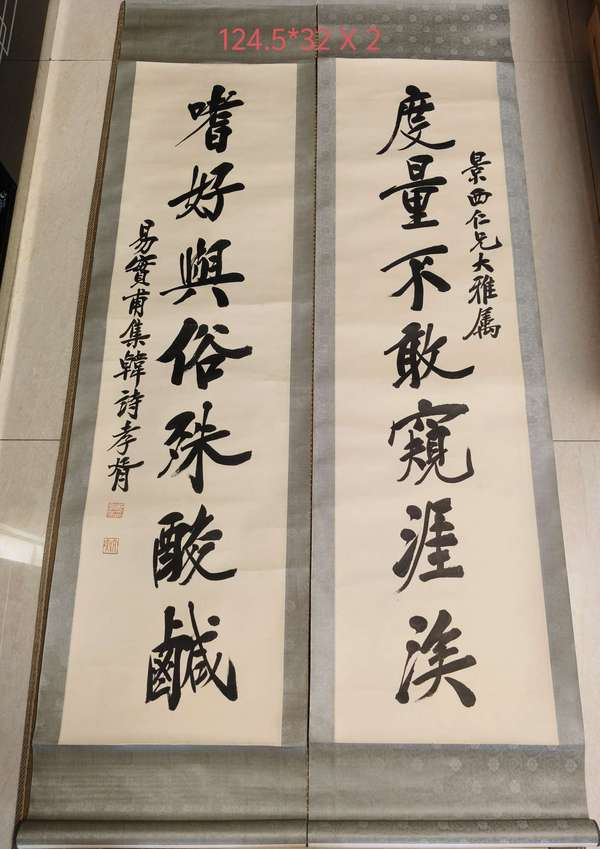 124.5*32 X 2
景西仁兄大雅属
度量不敢窺涯涘
嗜好與俗殊酸鹹
易實甫集韓詩孝胥